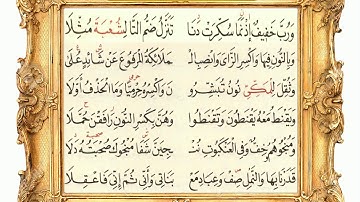 وَرُبَّ خَفِيفٌ إِذْ نَمَا سُكِّرَتْ دَنَا تَنَزَّلُ ضَمُّ التَّا لِشُعْبَةَ مُثِّلَا
وَبِالنُّونِ فِيهَا وَاكْسِرِ الزَّايَ وَانْصِبِ الْ مَلَائِكَةَ الْمَرْفُوعَ عَنْ شَائِدٍ عُلَا
وَثُقِّلَ لِلْمَكِّيِّ نُونُ تُبَشِّرُو نَ وَاكْسِرْهُ حِرْمِيًّا وَمَا الْحَذْفُ أَوَّلَا
وَيَقْنَطُ مَعْهُ يَقْنَطُونَ وَتَقْنَطُوا وَهُنَّ بِكَسْرِ النُّونِ رَافَقْنَ حُمَّلَا
وَمُنْجُوهُمُ خِفٌّ وَفِي الْعَنْكَبُوتِ نُنْ جِيَنَّ شَفَا مُنْجُوكَ صُحْبَتُهُ دَلَا
قَدَرْنَا بِهَا وَالنَّمْلِ صِفْ وَعِبَادِ مَعْ بَنَاتِي وَأَنِّي ثُمَّ إِنِّي فَاعْقِلَا